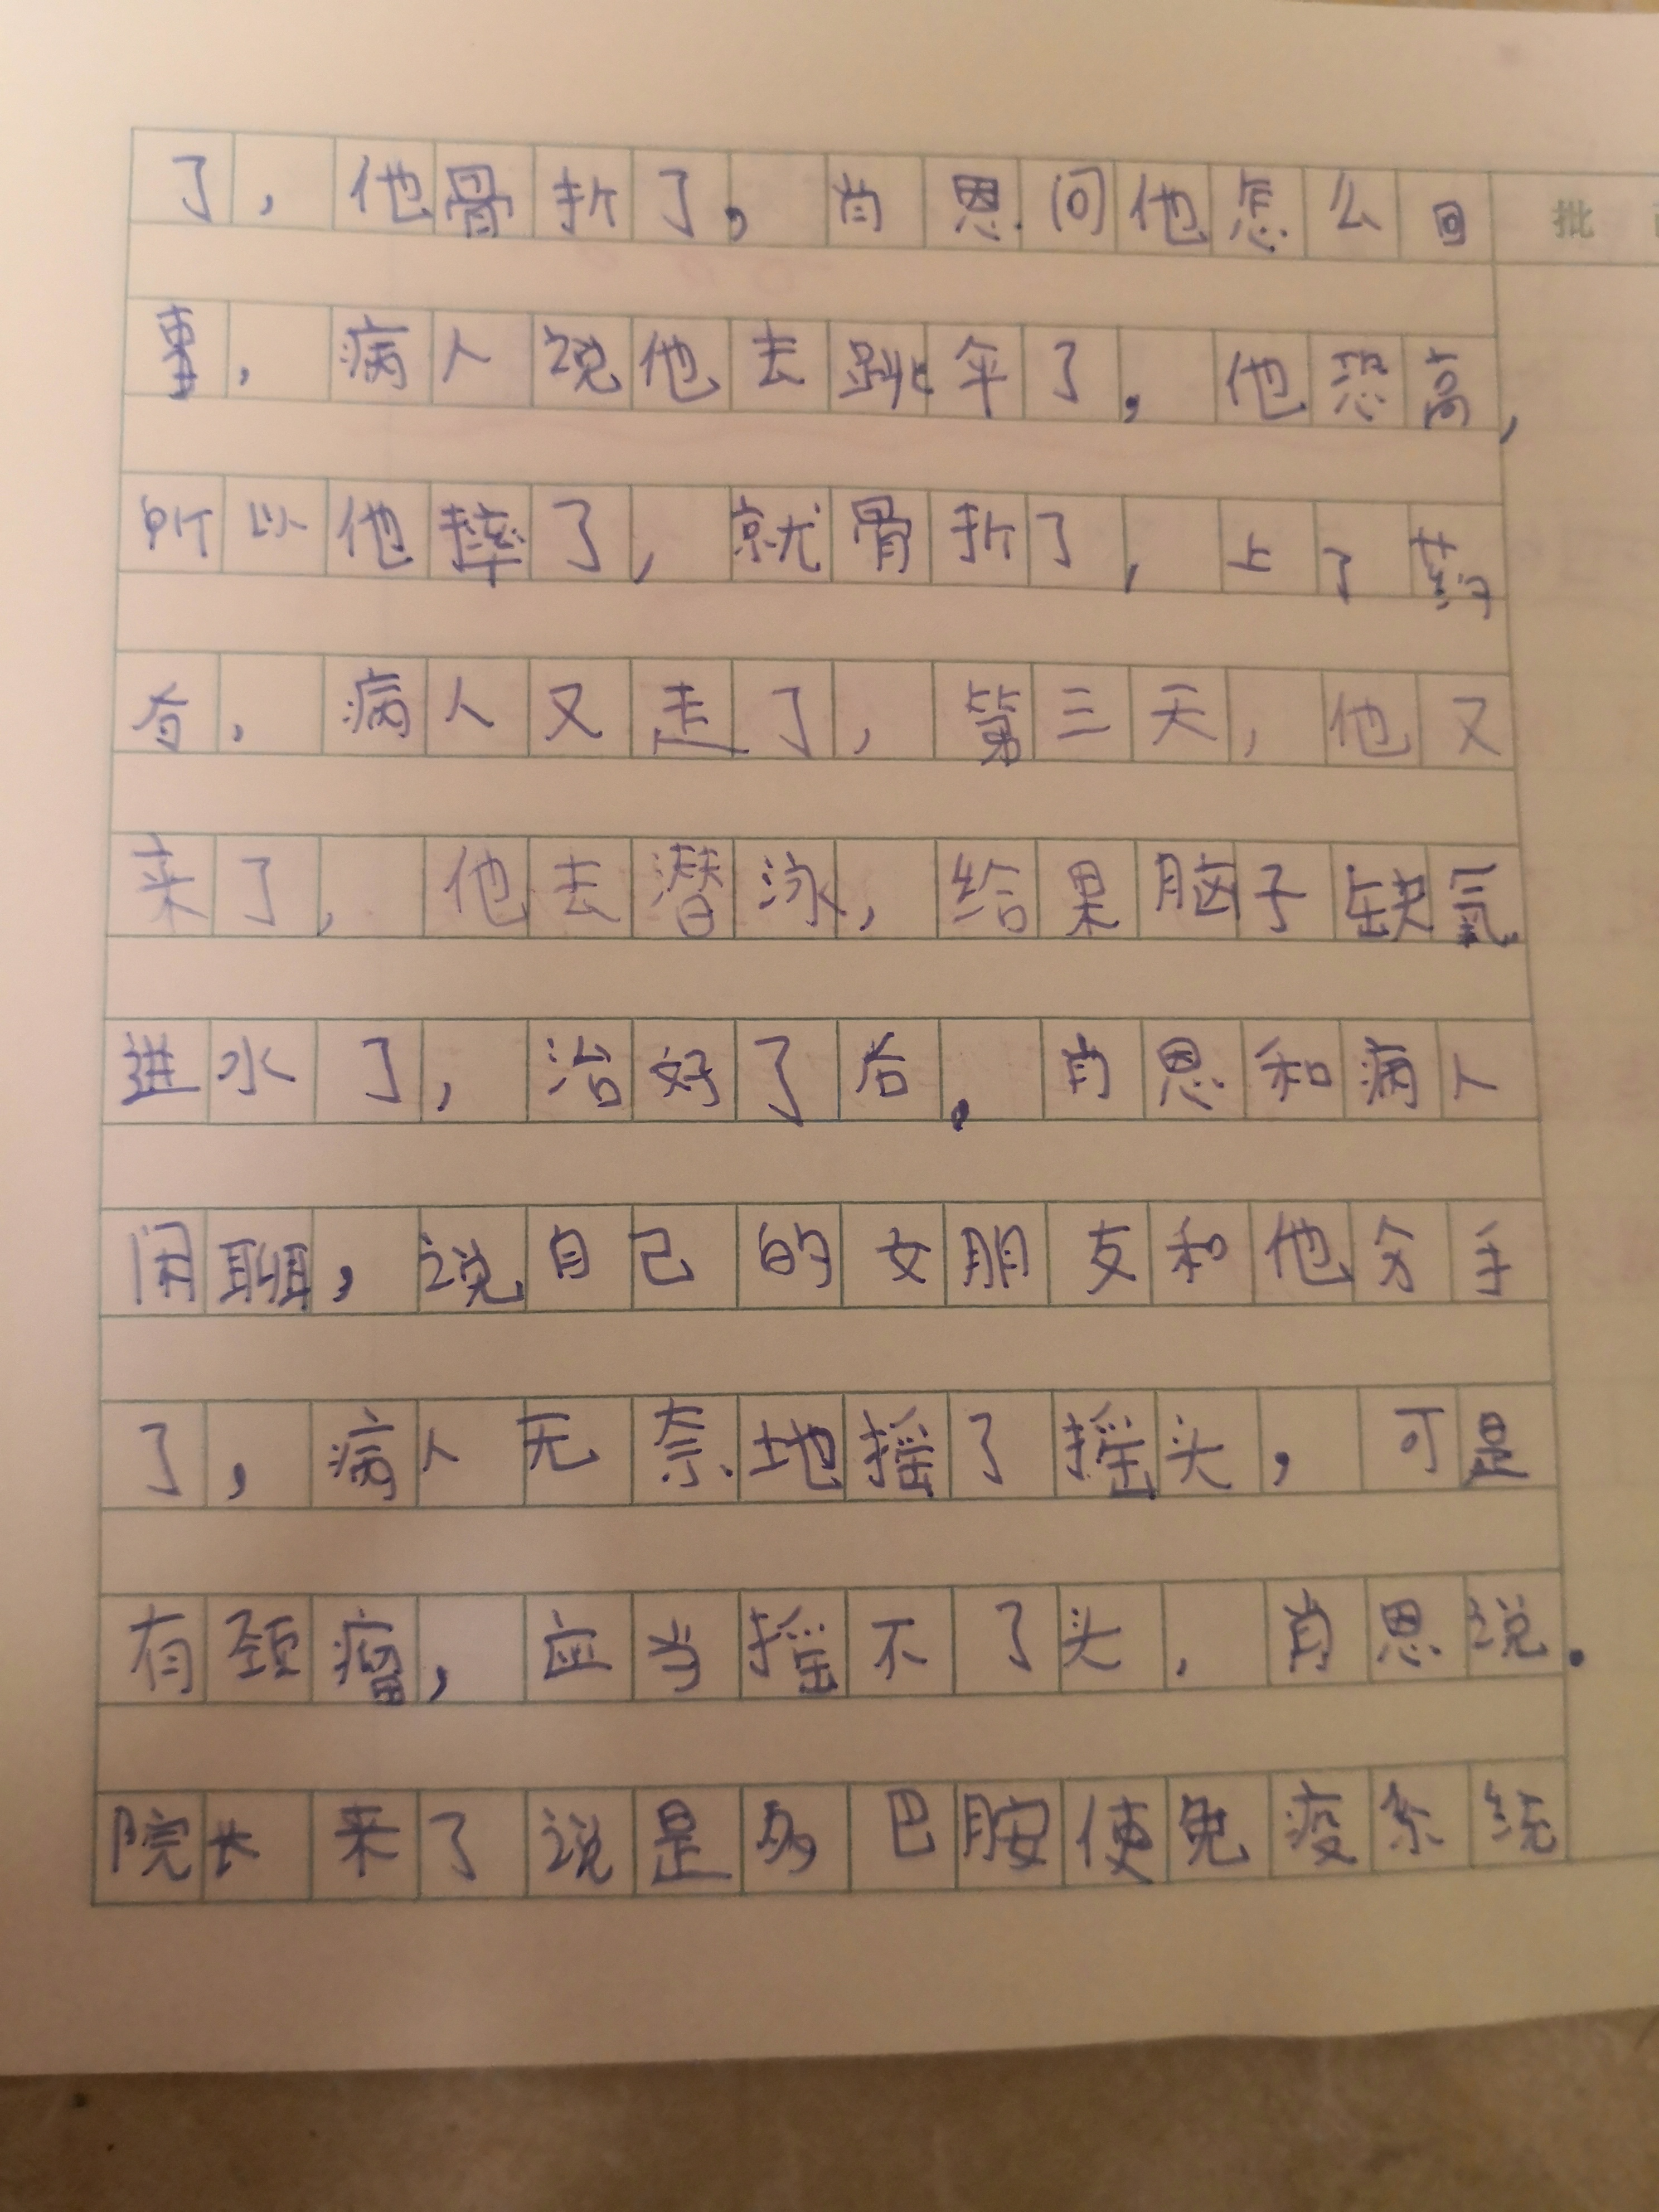 了，他骨折了，肖恩问他怎么回
事，病人说他去跳伞了，他恐高，
所以他摔了，就骨折了，上了药
病人又走了，第三天，他又
来了，他去潜泳，给果脑子缺氧
进水了，治好了后，肖恩和病人
闲聊，说自己的女朋友和他分手
了，病人无奈地摇了摇头，可是
有颈瘤，应当摇不了头，肖恩说。
院长来了说是多巴胺使免疫系统
批